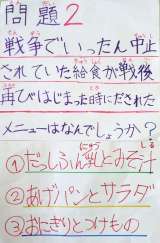 問題2
戦争でいったん中止
されていた給食が戦後
再びはじまった時にだされた
メニューはなんでしょうか?
①だっしふん乳とみそ汁
②あげパンとサラダ
③おにぎりとつけもの